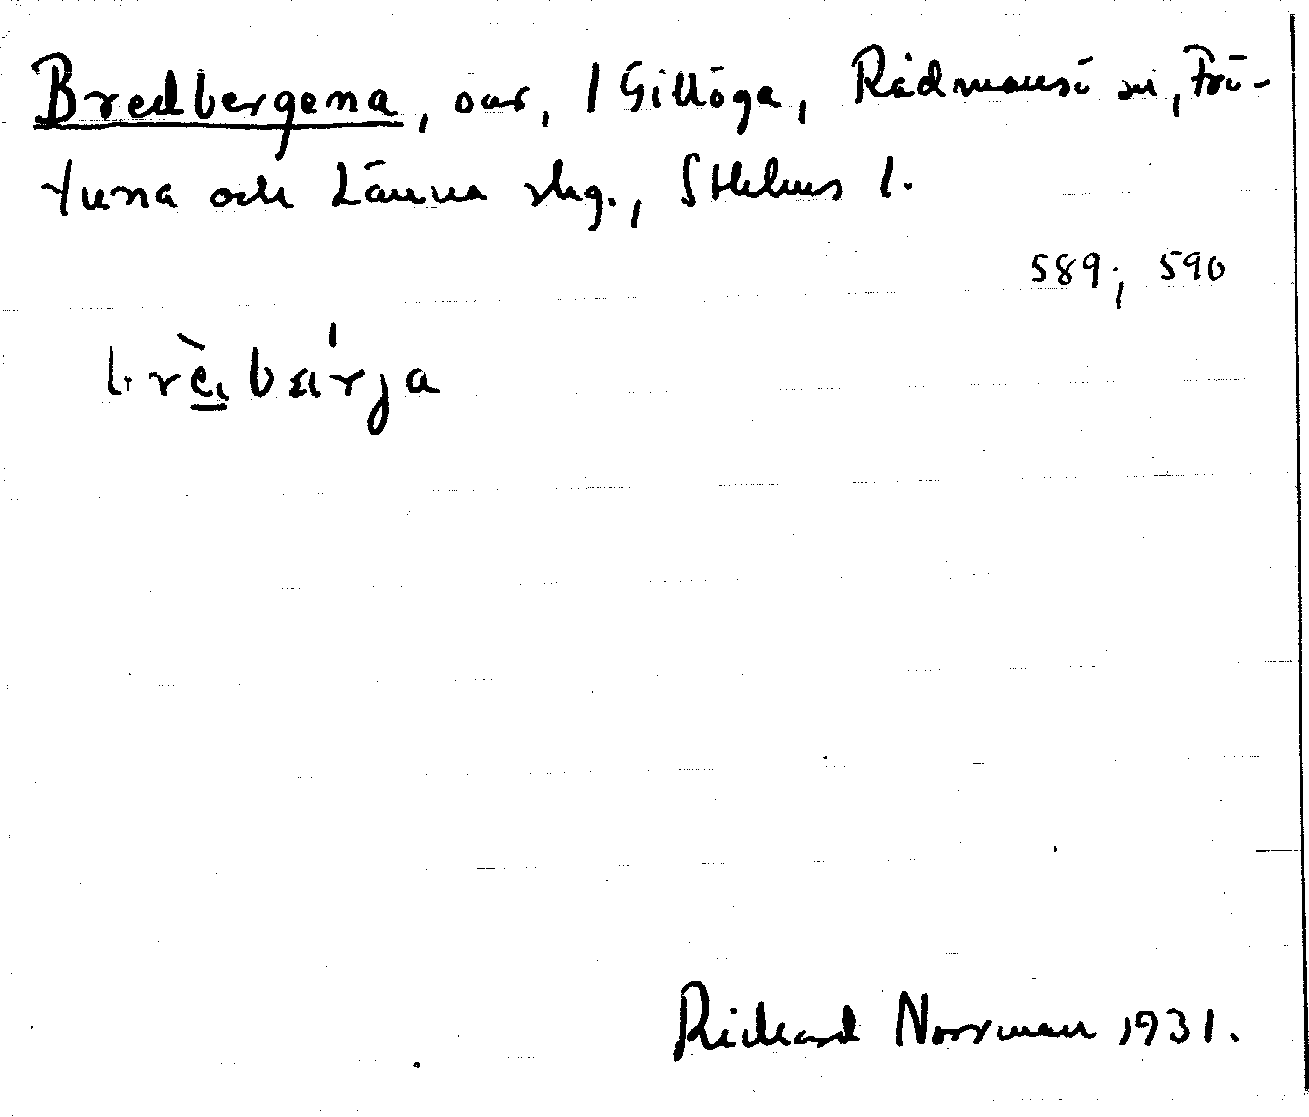 Bredbergena, öar, i Gillöga, Rådmansö sn, Frö-
tuna och Länna skg., Sthlms l.
589; 590
brèbárja
Rickard Norrman 1931.